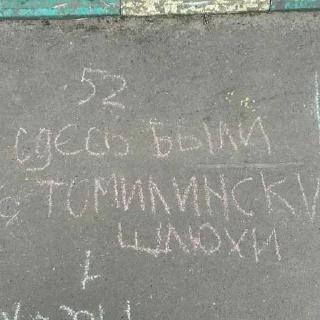 52
здесь были
томилински
шлюхи